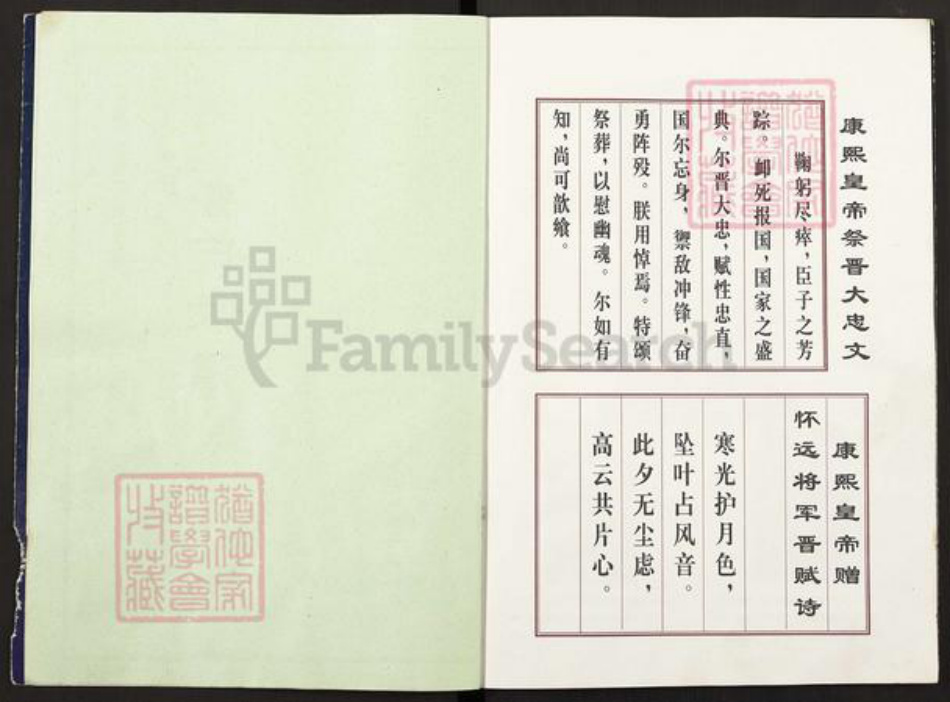 康熙皇帝祭晋大忠文
鞠躬尽瘁，臣子之芳
踪。卹死报国，国家之盛
典。尔晋大忠，赋性忠直，
国尔忘身，禦敌冲锋，奋
勇阵殁。朕用悼焉。特颂
祭葬，以慰幽魂。尔如有
知，尚可歆飨。
康熙皇帝赠
怀远将军晋赋诗
寒光护月色，
坠叶占风音。
此夕无尘虑，
高云共片心。
FamilySearch
猶他家
譜學會
收藏
猶他家
譜學會
收藏